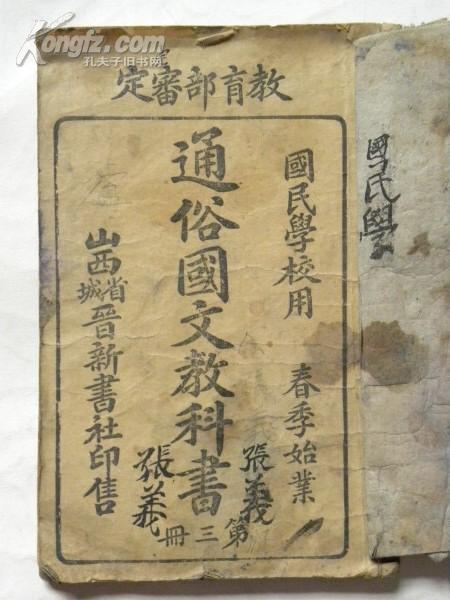 Kongfz.com
孔夫子旧书网
教育部審定
國民學校用 春季始業
通俗國文教科書
第三冊
張義
張義
山西省城晉新書社印售
國民學